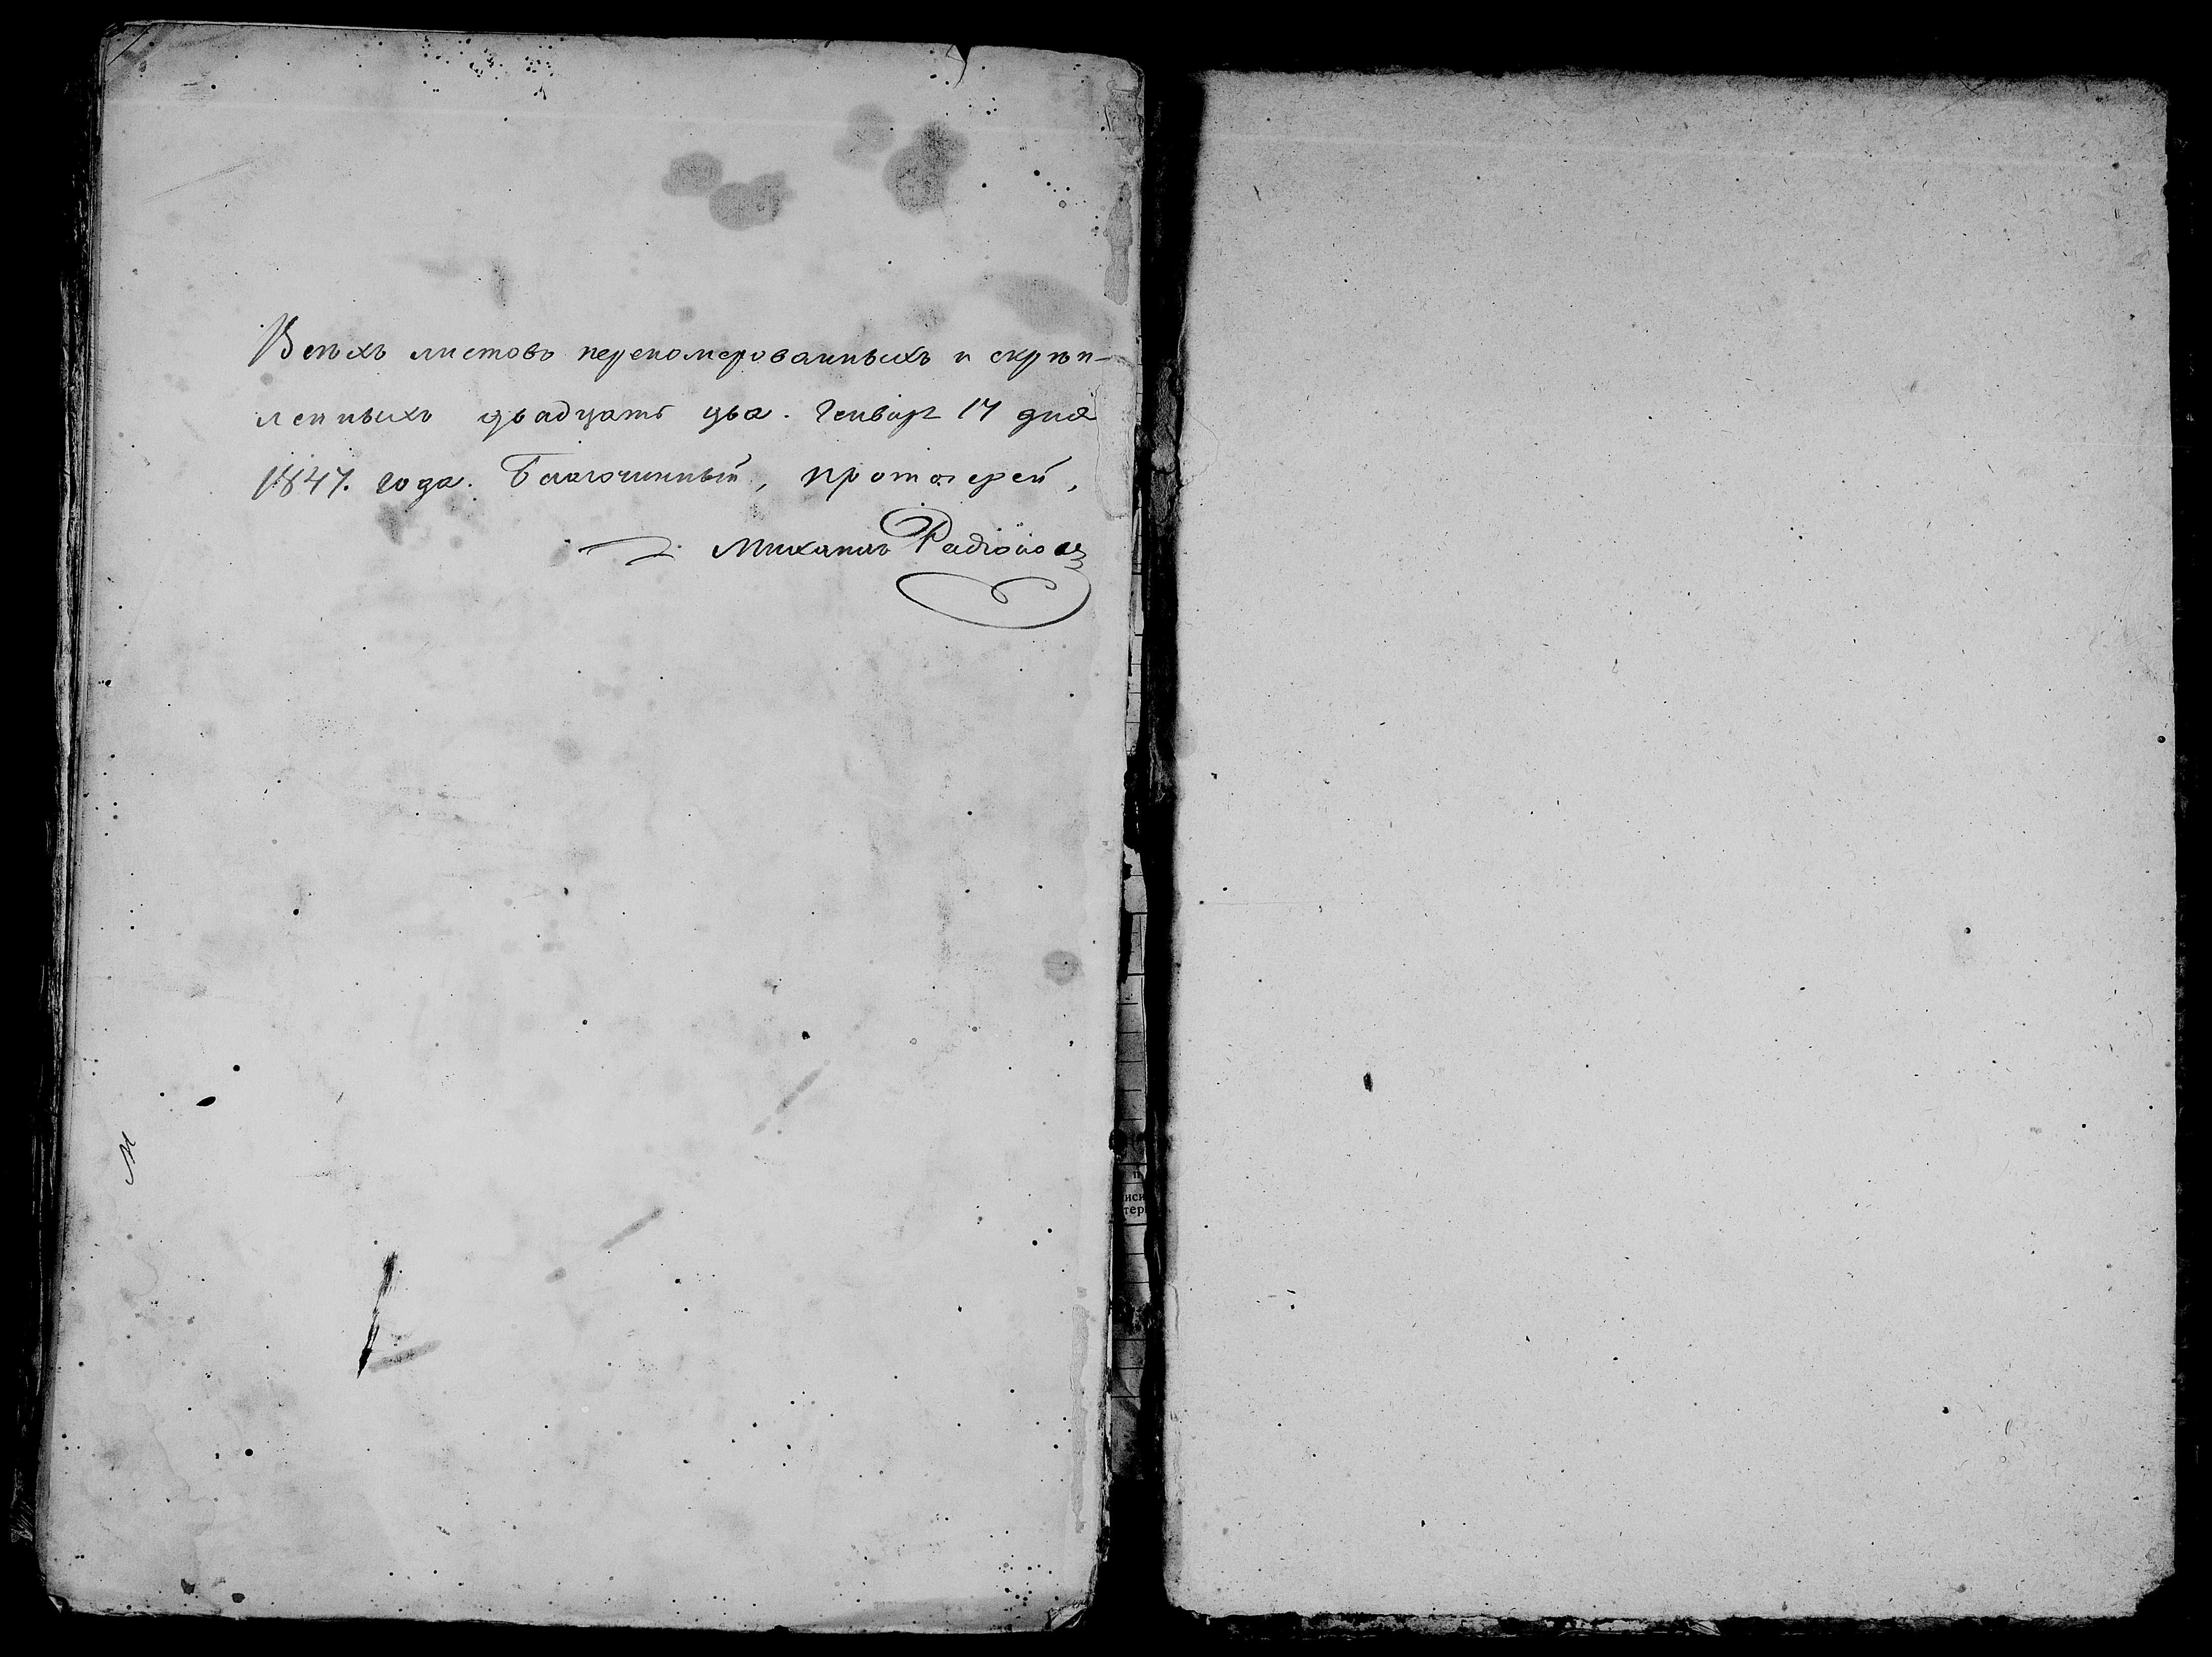 Всѣхъ листовъ переномерованныхъ и скрѣп-
ленныхъ двадцать два. Генвар 17 дня
1847. года. Благочинный, протоіерей,
Михаилъ Радіонов
М
иси
тер